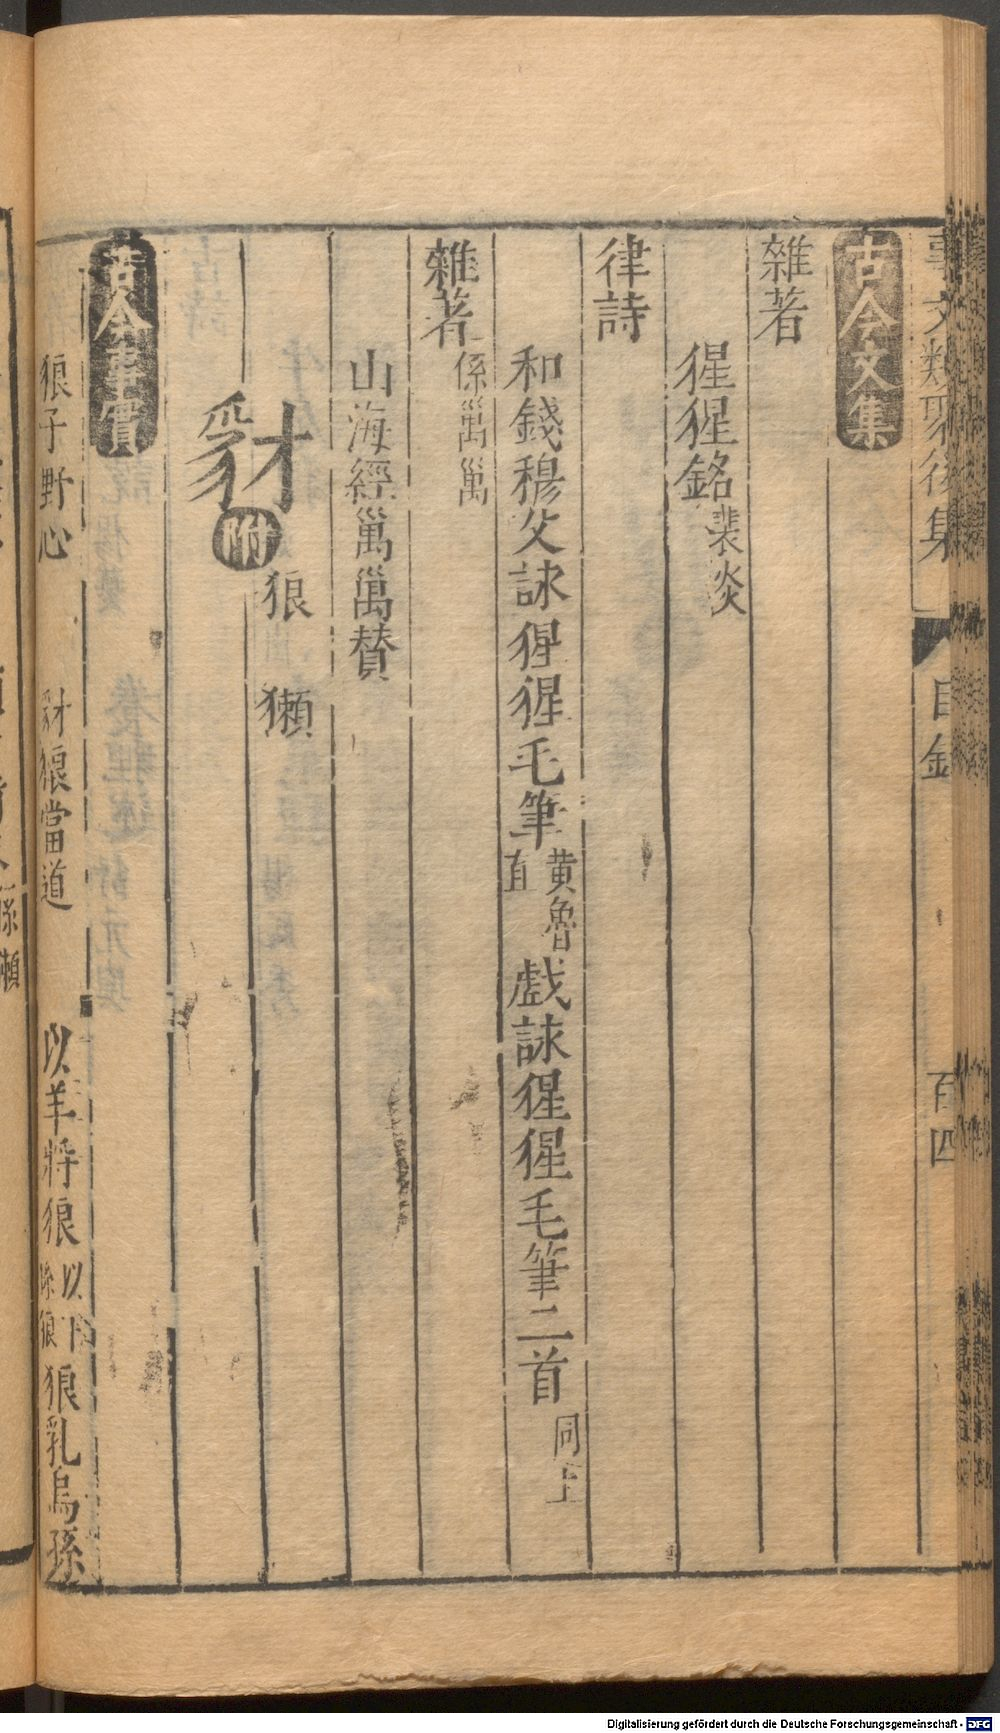 事文類聚後集 目錄 百四
古今文集
雜著
猩猩銘 裴炎
律詩
和錢穆父詠猩猩毛筆 黃魯直 戲詠猩猩毛筆二首 同上
雜著 係𥝋𥝋
山海經𥝋𥝋贊
豺 附 狼 獺
古今事實
狼子野心 豺狼當道 以羊將狼 以下係狼 狼乳烏孫
係獺
Digitalisierung gefördert durch die Deutsche Forschungsgemeinschaft - DFG